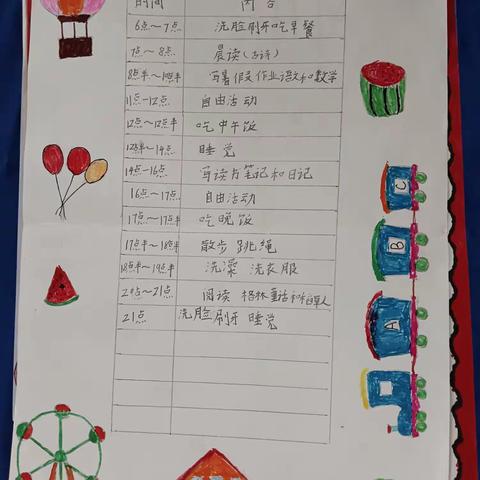 时间 内容
6点～7点 洗脸刷牙吃早餐
7点～8点 晨读(古诗)
8点半～10点半 写暑假作业语文和数学
11点-12点 自由活动
12点～12点半 吃中午饭
12点半～14点 睡觉
14点-16点 写读书笔记和日记
16点～17点 自由活动
17点～17点半 吃晚饭
17点半～18点半 散步 跳绳
18点半～19点半 洗澡 洗衣服
20点～21点 阅读 格林童话和稻草人
21点 洗脸刷牙 睡觉
C
B
A